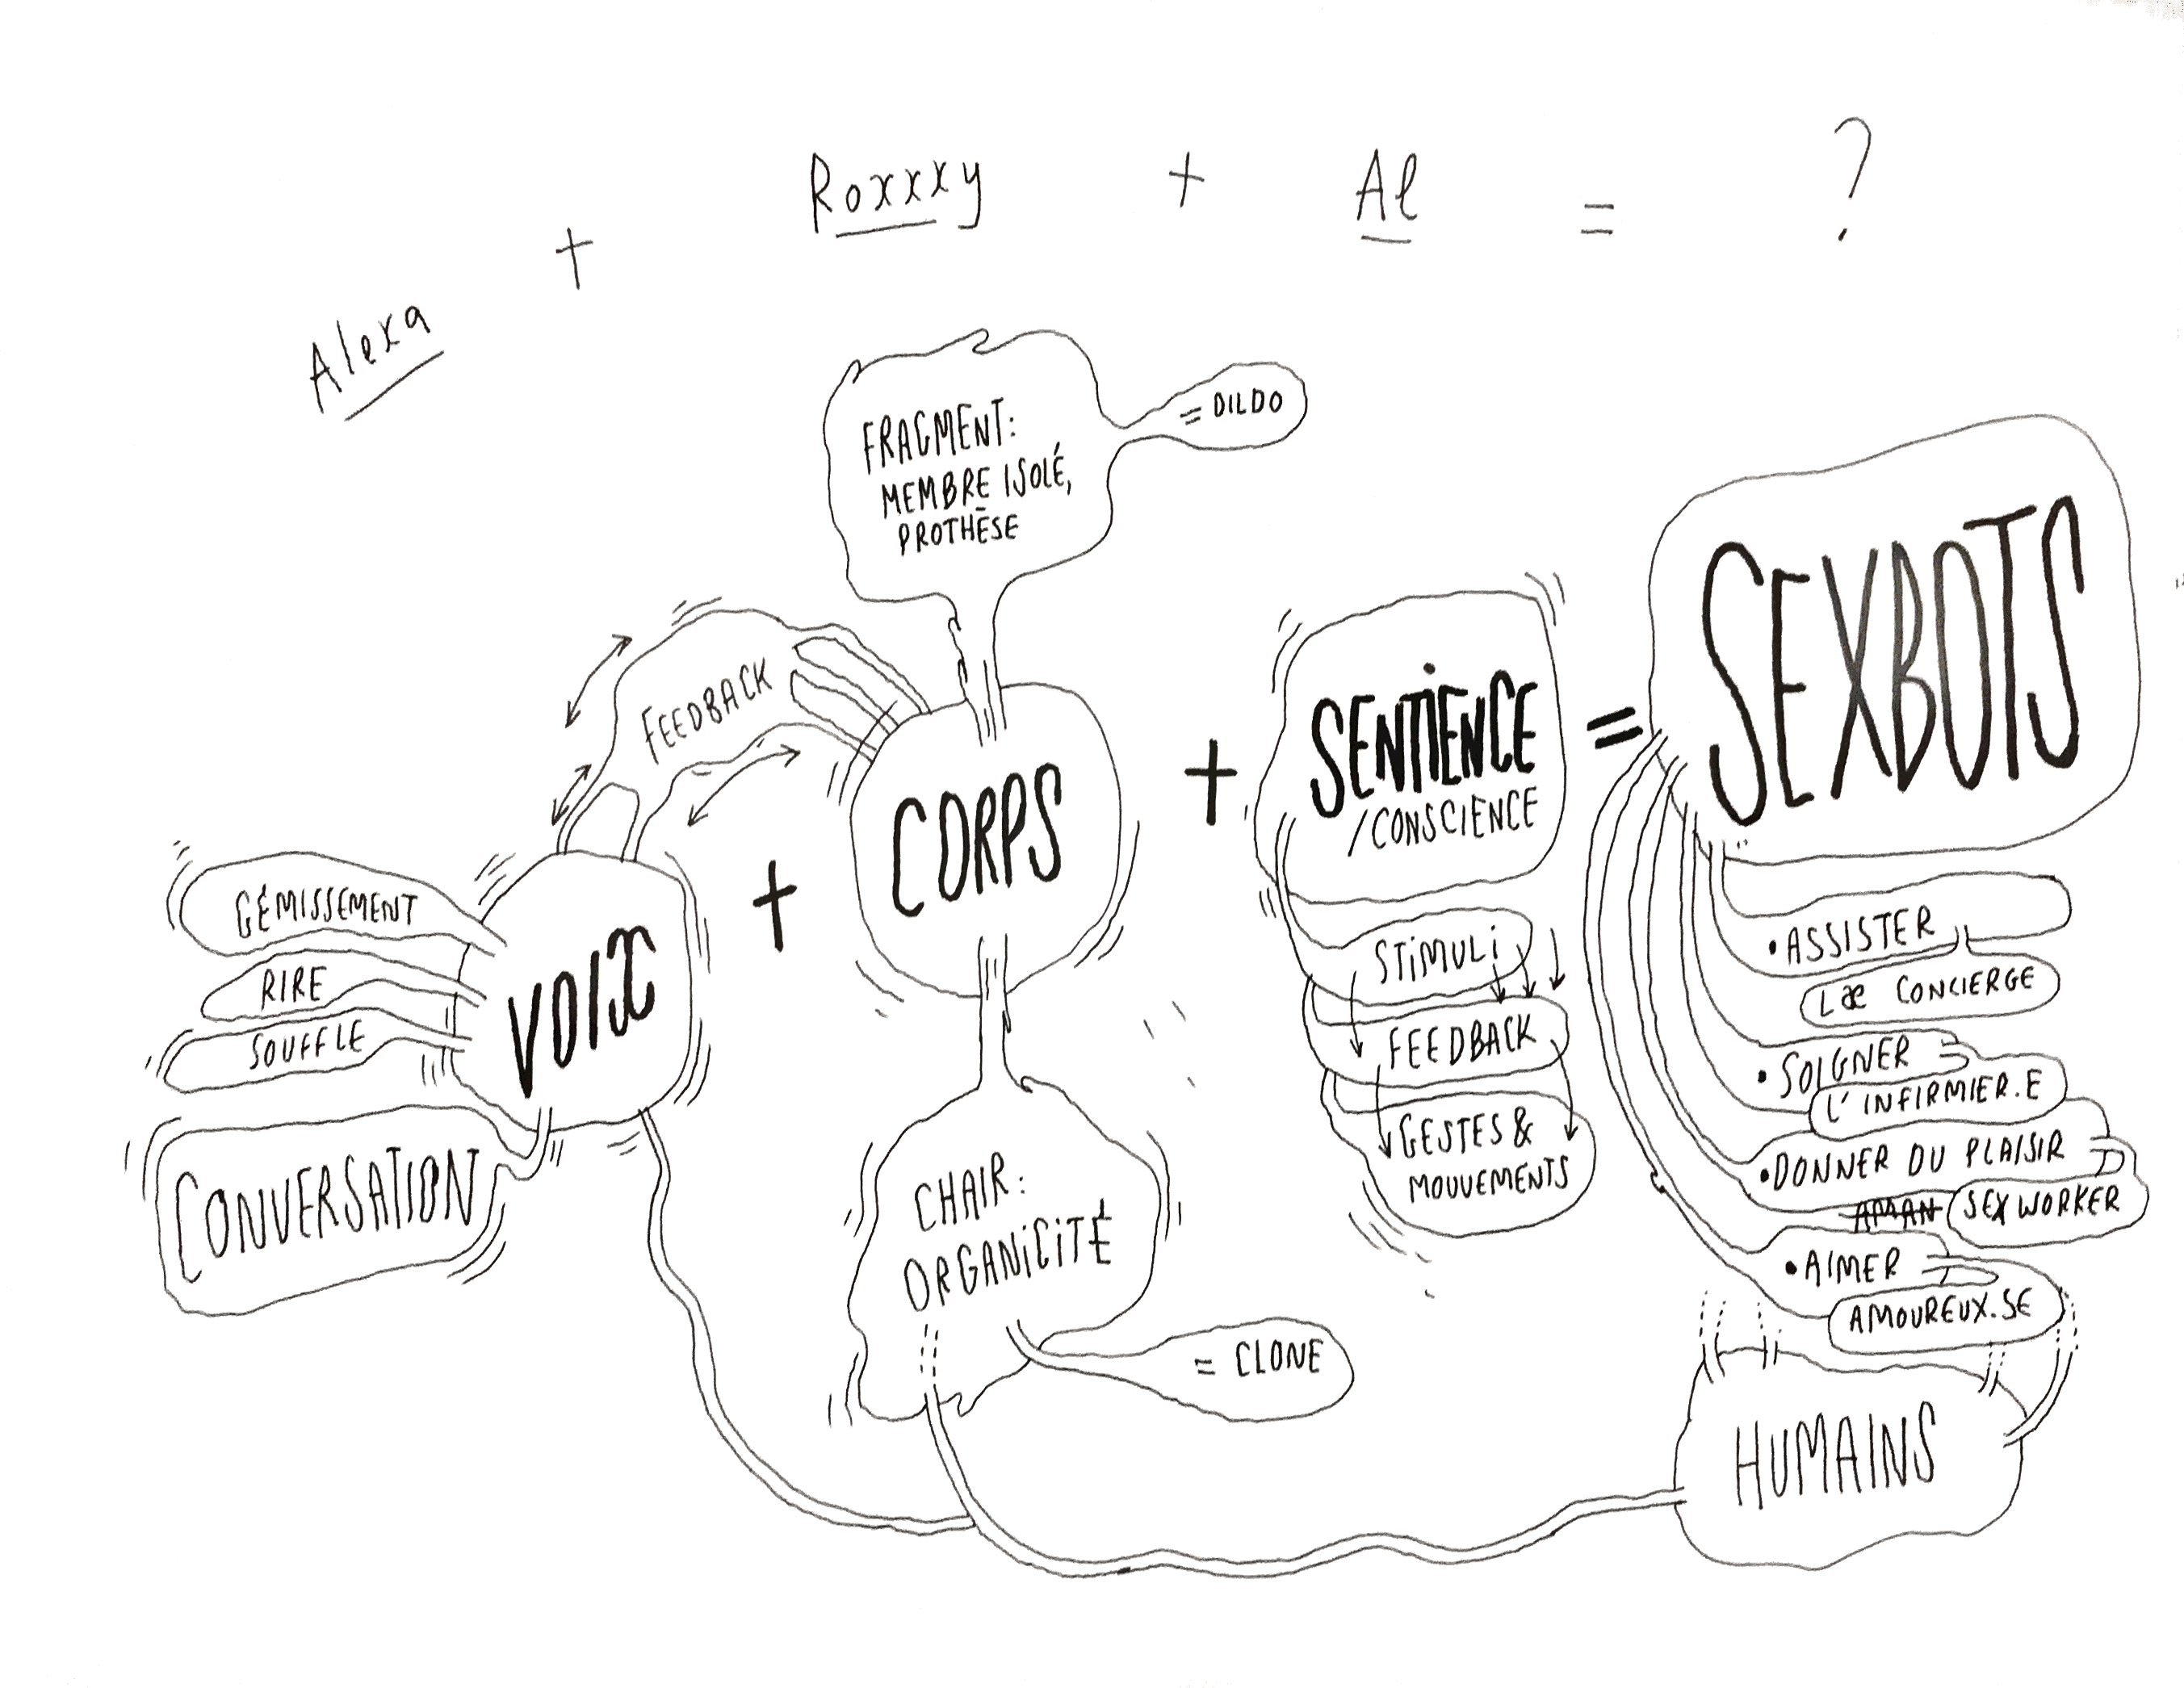 Alexa + Roxxxy + Al = ?
FRAGMENT:
MEMBRE ISOLÉ,
PROTHÈSE
= DILDO
FEEDBACK
GÉMISSEMENT
RIRE
SOUFFLE
CONVERSATION
VOIX
+
CORPS
CHAIR:
ORGANICITÉ
= CLONE
+
SENTIENCE
/CONSCIENCE
STIMULI
FEEDBACK
GESTES &
MOUVEMENTS
=
SEXBOTS
• ASSISTER
Læ CONCIERGE
• SOIGNER
L'INFIRMIER.E
• DONNER DU PLAISIR
AMAN SEX WORKER
• AIMER
AMOUREUX.SE
HUMAINS